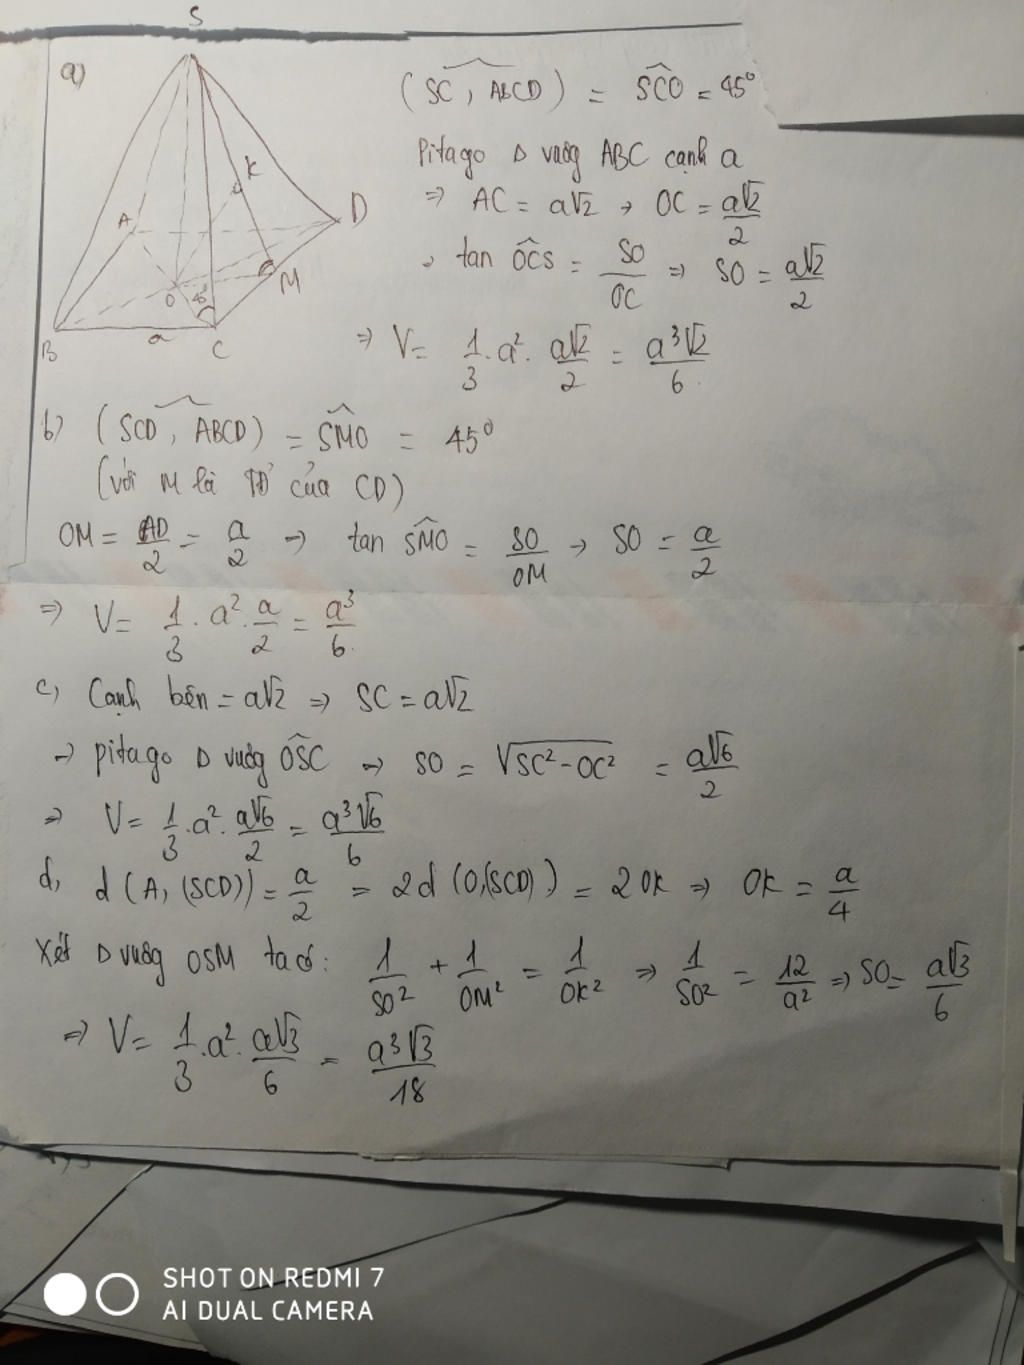 S
a)
A
K
D
O
45°
M
B
a
C
(SC, ABCD) = SĈO = 45°
Pitago Δ vuôg ABC cạnh a
⇒ AC = a√2 → OC = a√2/2
→ tan OĈS = SO/OC ⇒ SO = a√2/2
⇒ V = 1/3 . a² . a√2/2 = a³√2/6.
b) (SCD, ABCD) = SM̂O = 45°
(với M là TĐ của CD)
OM = AD/2 = a/2 → tan SM̂O = SO/OM → SO = a/2
⇒ V = 1/3 . a² . a/2 = a³/6.
c, Cạnh bên = a√2 ⇒ SC = a√2
→ pitago Δ vuôg OSC → SO = √SC² - OC² = a√6/2
⇒ V = 1/3 . a² . a√6/2 = a³√6/6
d, d(A, (SCD)) = a/2 = 2d(O,(SCD)) = 2OK ⇒ OK = a/4
Xét Δ vuôg OSM ta có: 1/SO² + 1/OM² = 1/OK² ⇒ 1/SO² = 12/a² ⇒ SO = a√3/6
⇒ V = 1/3 . a² . a√3/6 = a³√3/18
SHOT ON REDMI 7
AI DUAL CAMERA